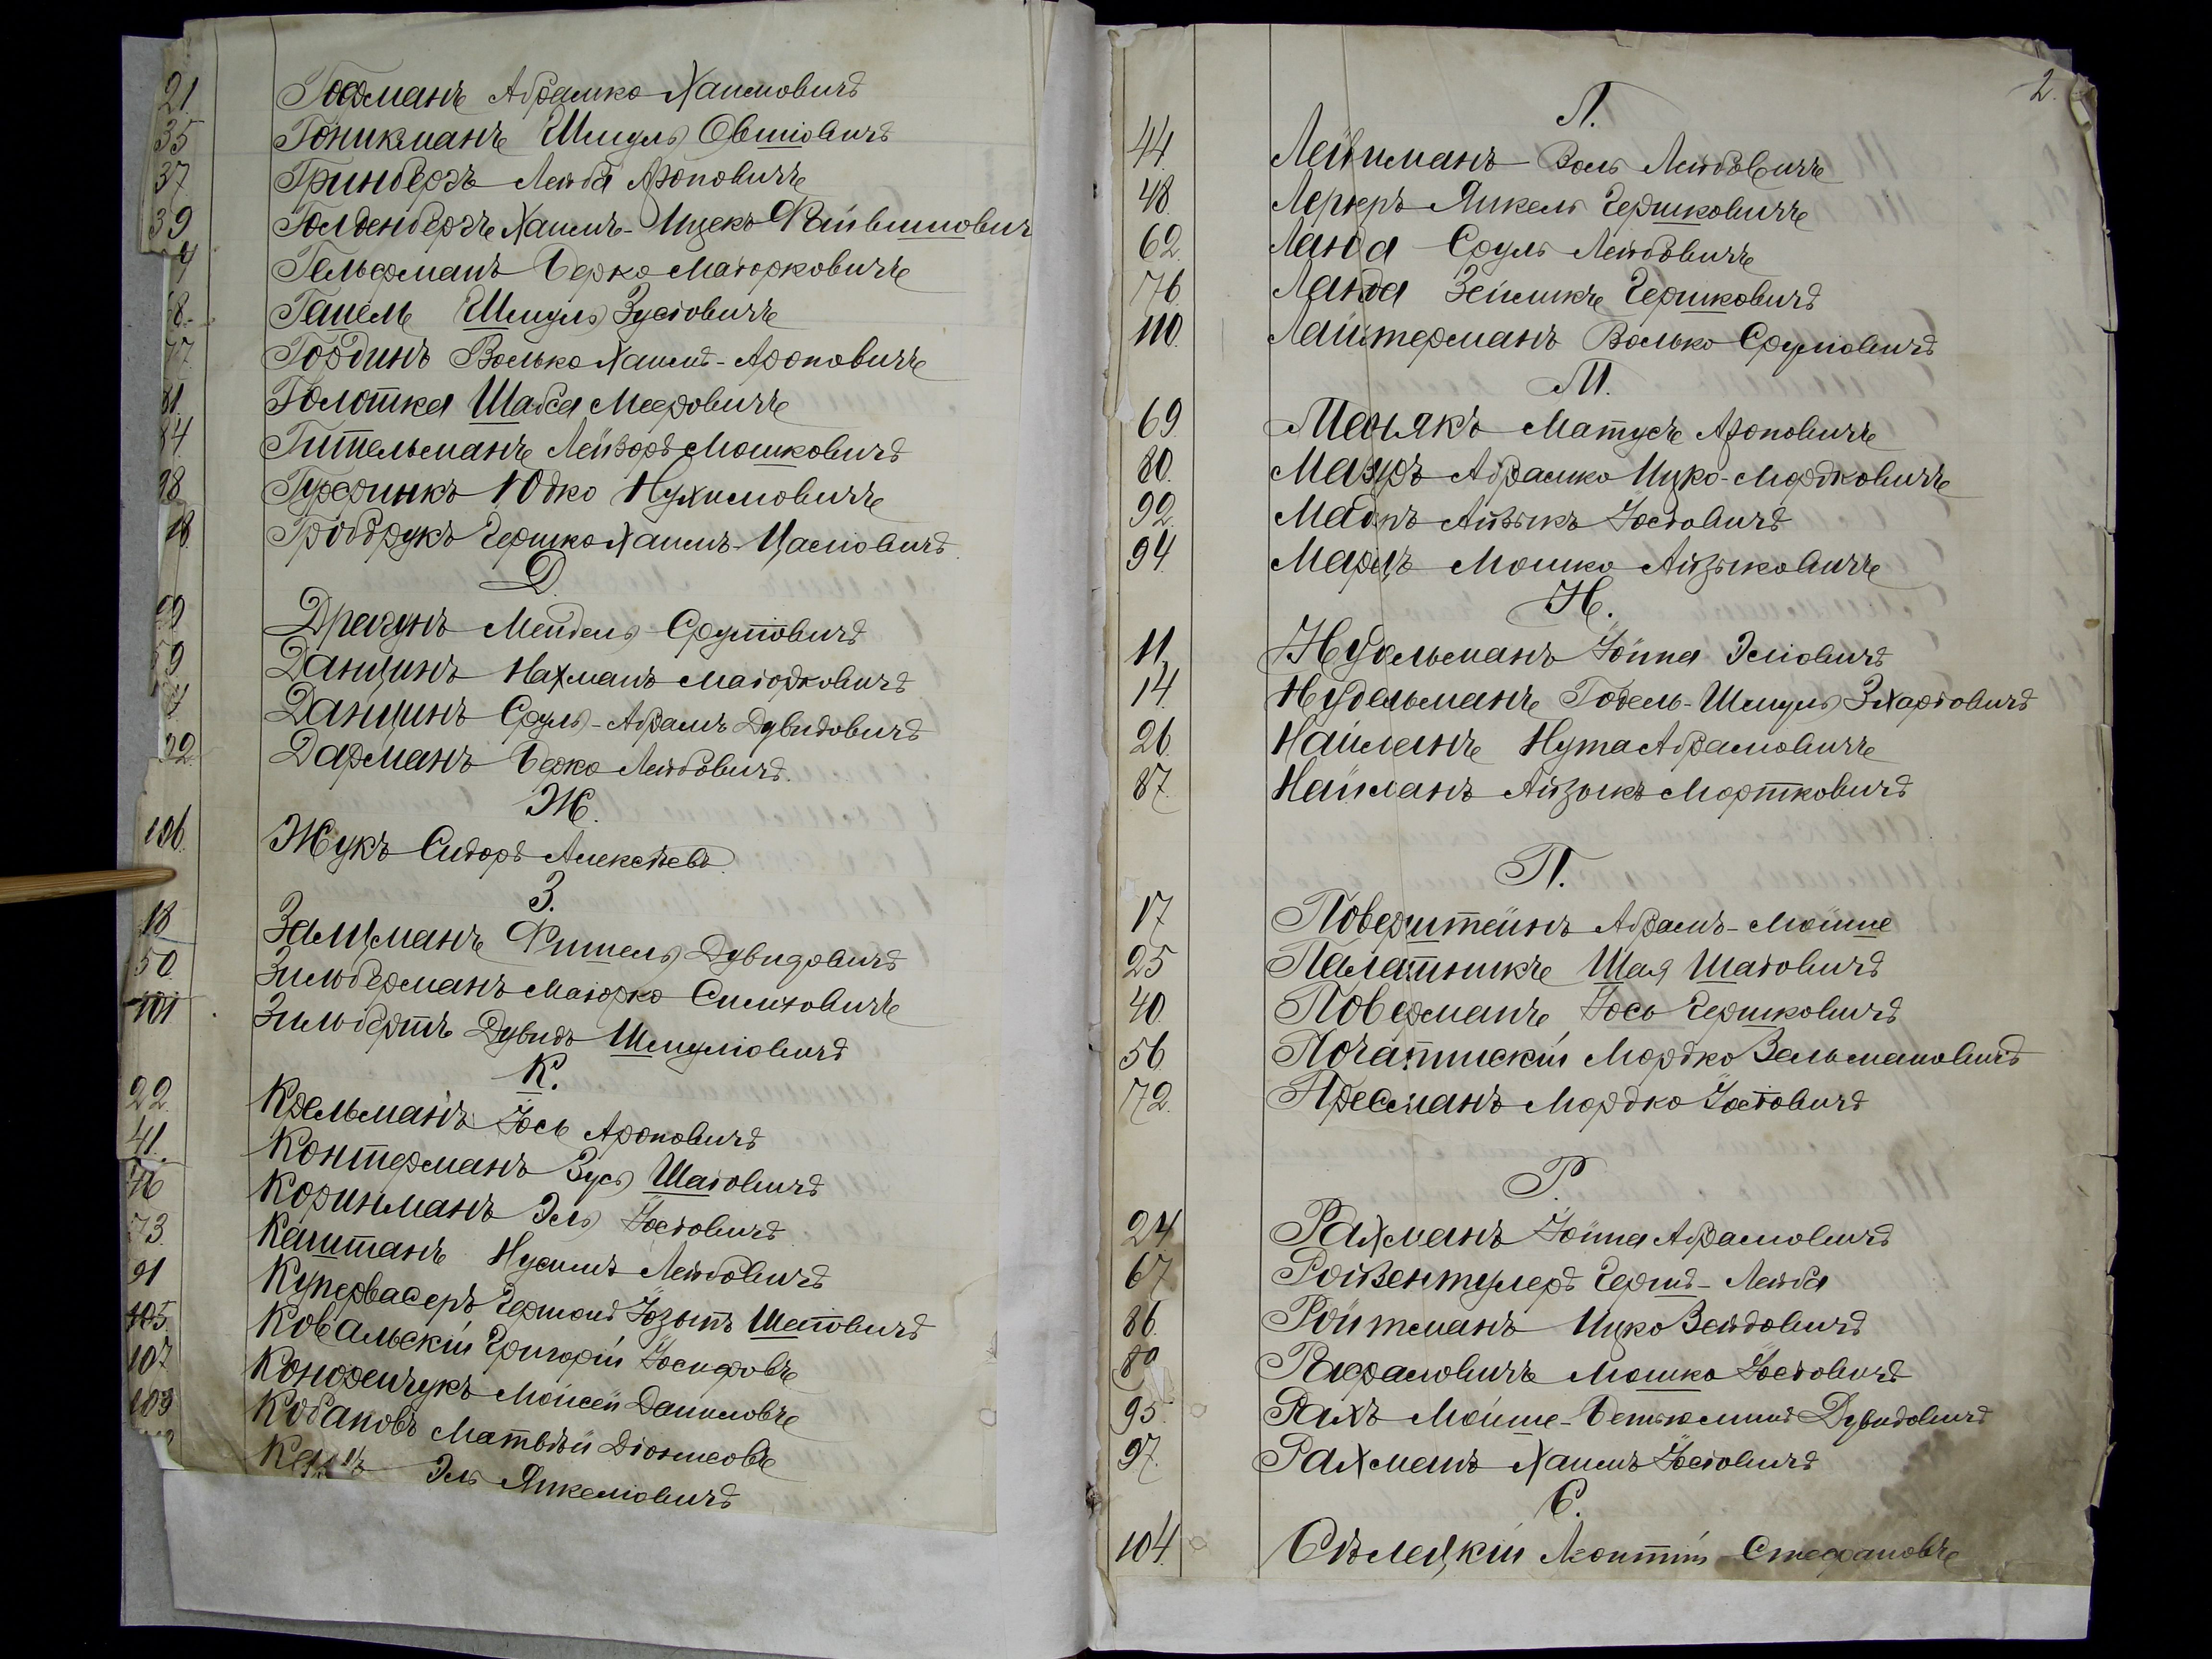 21. Гофманъ Абрамко Хаимовичъ
35 Гоникманъ Шмуль Овшіовичъ
37 Гринбергъ Лейба Ароновичъ
39 Голденбергъ Хаимъ-Ицекъ Файвишовичъ
Гельфманъ Берко Маіорковичъ
8. Гашель Шмуль Зусіовичъ
77. Гординъ Волько Хаимъ-Ароновичъ
81. Голотка Шабса Мееровичъ
84. Гительманъ Лейзоръ Мошковичъ
98 Гурфинкъ Юдко Нухимовичъ
18. Гробдрукъ Гершко Хаимъ-Цаліовичъ
Д.
Драгунъ Мендель Срулiовичъ
59 Данцинъ Нахманъ Маіорковичъ
Данцинъ Сруль-Абрамъ Дувидовичъ
22 Дарманъ Берко Лейбовичъ.
Ж.
106. Жукъ Сидоръ Алексѣевъ.
З.
18 Залцманъ Фишель Дувидовичъ
50. Зильберманъ Маіорко Симховичъ
101 Зильбертъ Дувидъ Шмуліовичъ
К.
22. Кдельманъ Іось Ароновичъ
41. Контерманъ Зусь Шаіовичъ
76 Коринманъ Эль Іосіовичъ
73. Каштанъ Нусимъ Лейбовичъ
91 Купервасеръ Гершонъ Іозыпъ Шеповичъ
105. Ковальскій Григорій Іосифовъ
107 Конофенчукъ Моисей Даниловъ
109 Кобаковъ Матвѣй Діонисовъ
Эль Янкеліовичъ
2.
Л.
44. Лейшманъ Воль Лейбовичъ
48. Лернеръ Янкель Гершковичъ
62. Ланда Сруль Лейбовичъ
76. Ланда Зейликъ Гершковичъ
110. Лайтерманъ Волько Сруліовичъ
М.
69. Менякъ Матусъ Ароновичъ
80. Мазуръ Абрамко Ицко-Мордковичъ
92. Айзыкъ Іосіовичъ
94. Марцъ Мошко Айзыковичъ
Н.
11. Нудельманъ Іойна Эліовичъ
14. Нудельманъ Годель-Шмуль Зхаріовичъ
26. Найманъ Нута Абрамовичъ
87. Найманъ Айзыкъ Мортковичъ
П.
17. Поверштейнъ Абрамъ-Мойше
25. Палатникъ Шая Шаіовичъ
40. Поверманъ Іось Гершковичъ
56. Почапинскій Мордко Зельмановичъ
72. Пресманъ Мордко Іосіовичъ
Р.
24 Рахманъ Іойна Абрамовичъ
67 Ройзентулеръ Гершъ-Лейба
86. Ройтманъ Ицко Зейдовичъ
89 Рафаловичъ Мошко Іосіовичъ
95. Рахъ Мойше-Беньюминъ Дувидовичъ
97. Рахманъ Хаимъ Іосіовичъ
С.
104. Сѣлецкій Леонтій Стефановъ